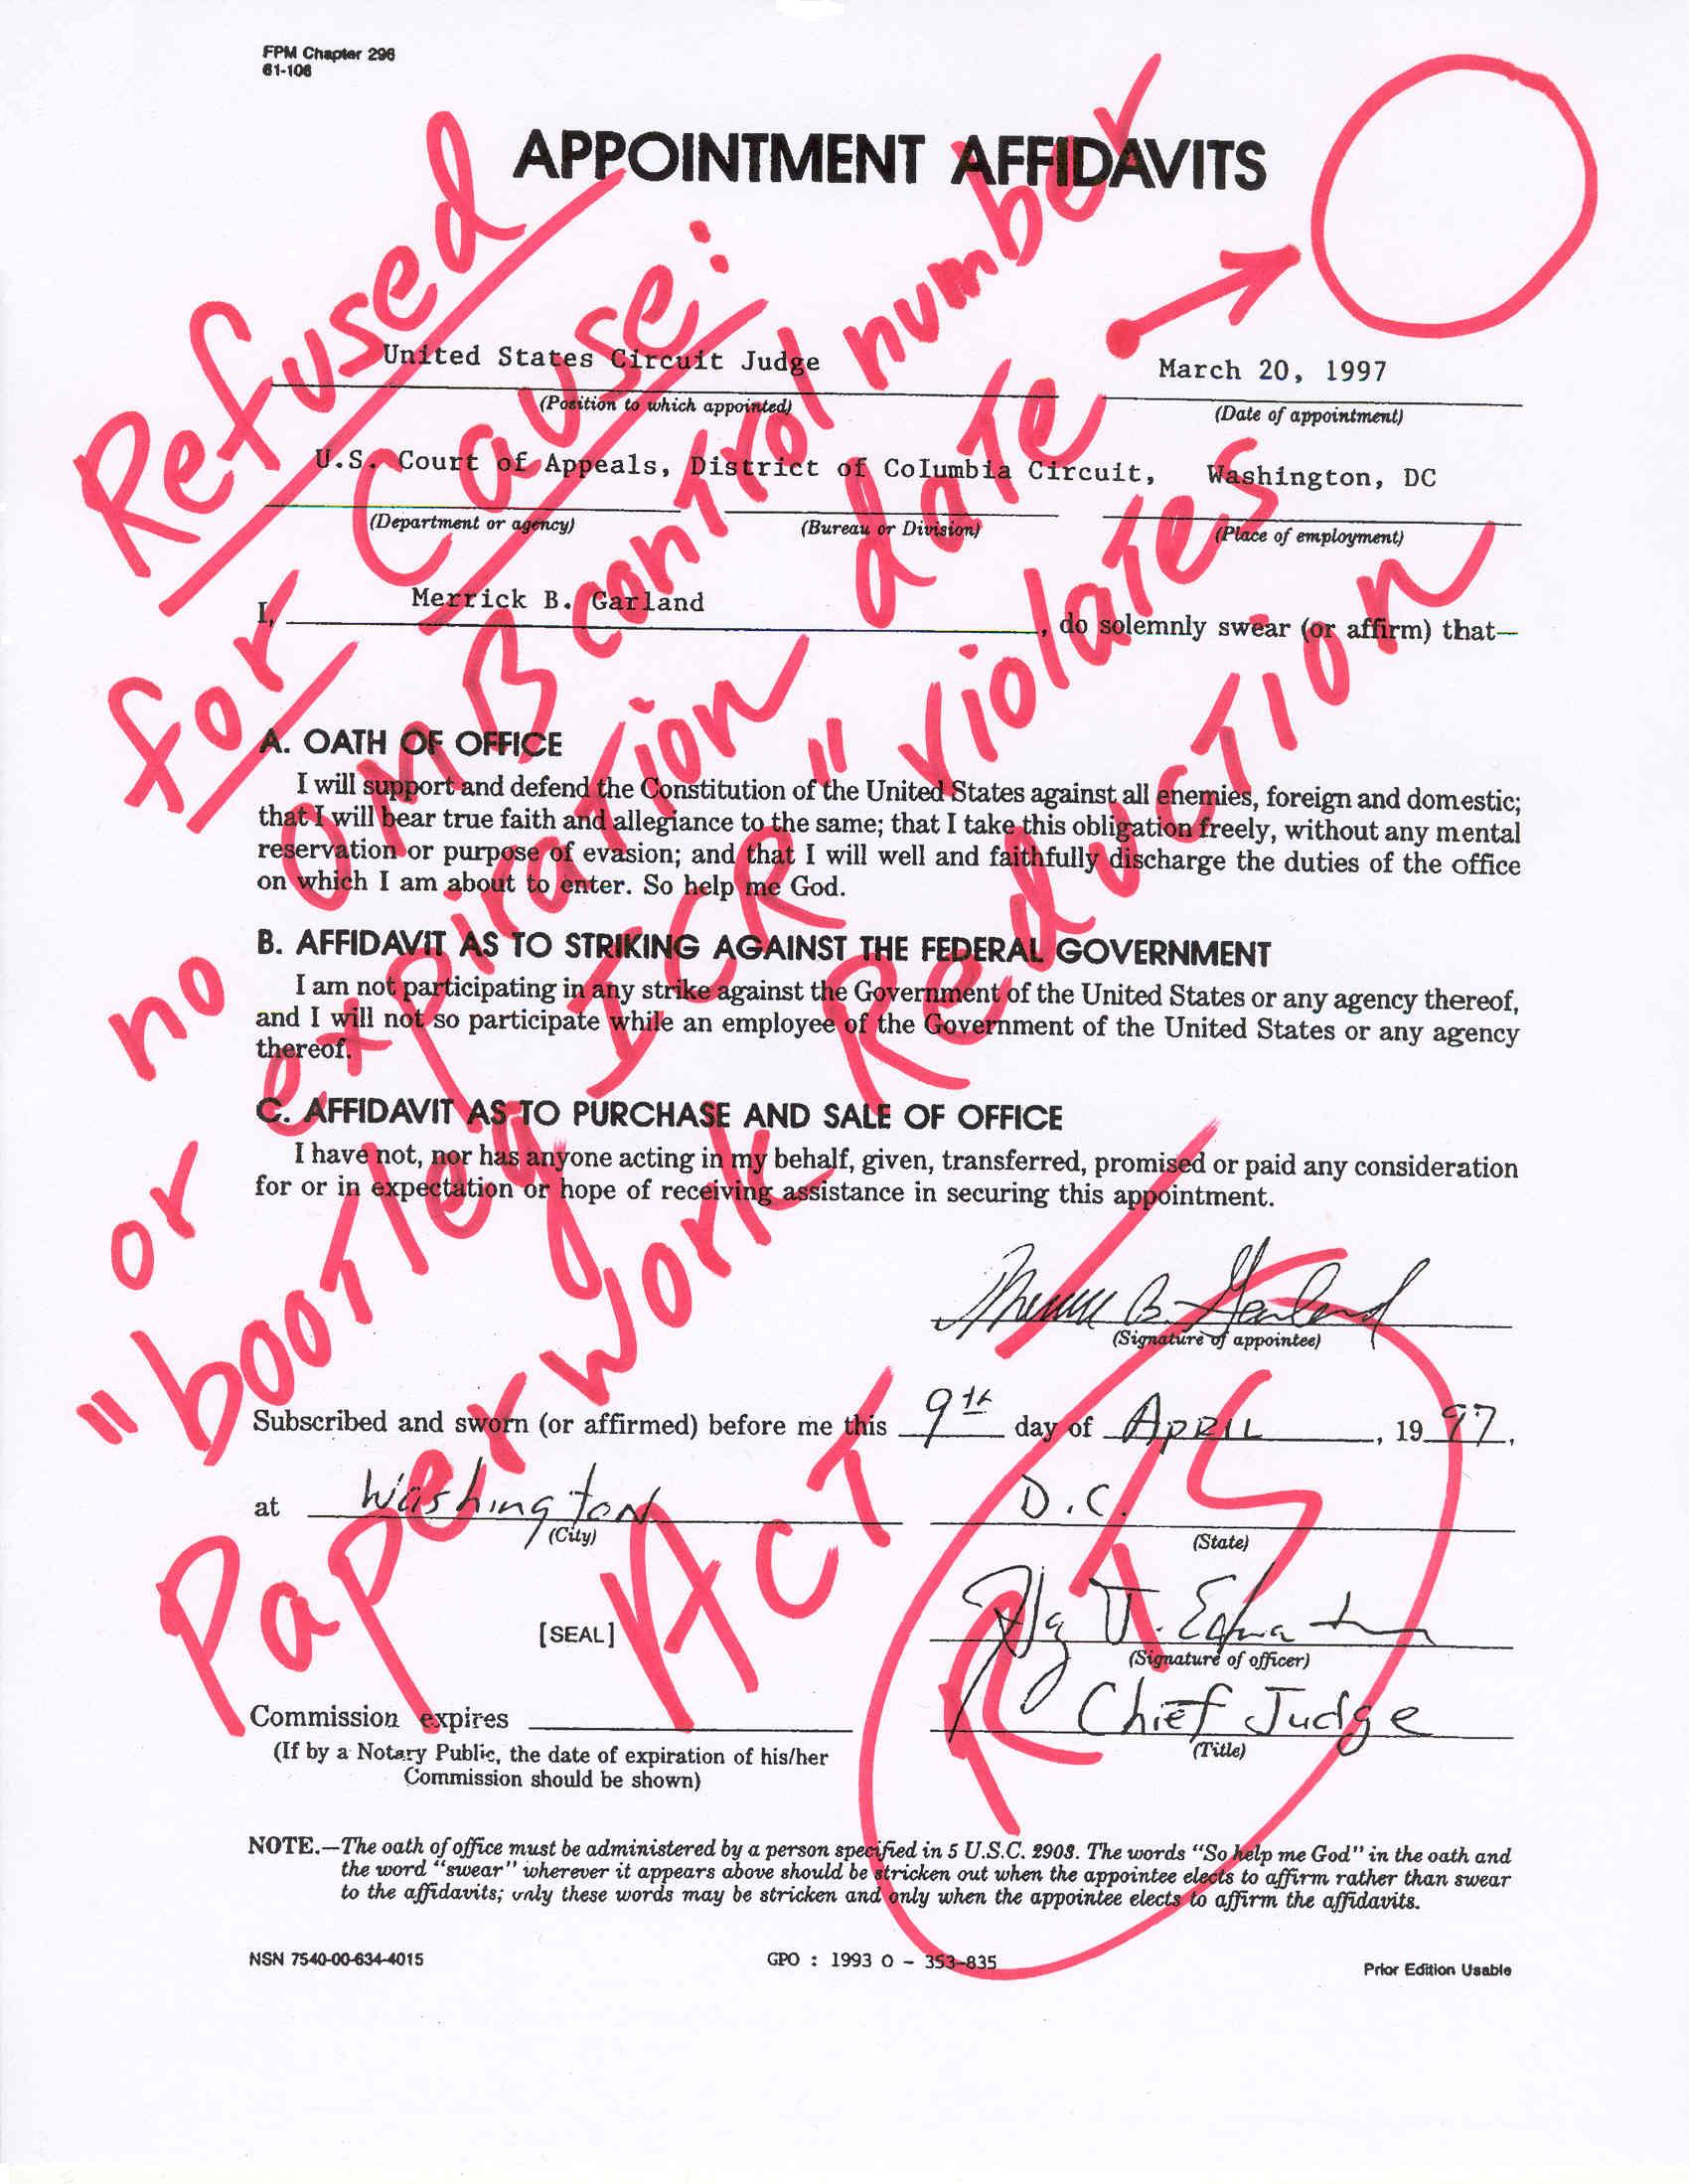 FPM Chapter 296
61-106
APPOINTMENT AFFIDAVITS
United States Circuit Judge March 20, 1997
(Position to which appointed) (Date of appointment)
U.S. Court of Appeals, District of Columbia Circuit, Washington, DC
(Department or agency) (Bureau or Division) (Place of employment)
I, Merrick B. Garland, do solemnly swear (or affirm) that—
A. OATH OF OFFICE
I will support and defend the Constitution of the United States against all enemies, foreign and domestic;
that I will bear true faith and allegiance to the same; that I take this obligation freely, without any mental
reservation or purpose of evasion; and that I will well and faithfully discharge the duties of the office
on which I am about to enter. So help me God.
B. AFFIDAVIT AS TO STRIKING AGAINST THE FEDERAL GOVERNMENT
I am not participating in any strike against the Government of the United States or any agency thereof,
and I will not so participate while an employee of the Government of the United States or any agency
thereof.
C. AFFIDAVIT AS TO PURCHASE AND SALE OF OFFICE
I have not, nor has anyone acting in my behalf, given, transferred, promised or paid any consideration
for or in expectation or hope of receiving assistance in securing this appointment.
Merrick B. Garland
(Signature of appointee)
Subscribed and sworn (or affirmed) before me this 9th day of APRIL, 19 97,
at Washington D.C.
(City) (State)
[SEAL]
(Signature of officer)
Chief Judge
Commission expires
(Title)
(If by a Notary Public, the date of expiration of his/her
Commission should be shown)
NOTE.—The oath of office must be administered by a person specified in 5 U.S.C. 2903. The words "So help me God" in the oath and
the word "swear" wherever it appears above should be stricken out when the appointee elects to affirm rather than swear
to the affidavits; only these words may be stricken and only when the appointee elects to affirm the affidavits.
NSN 7540-00-634-4015 GPO : 1993 O - 353-835 Prior Edition Usable
Refused
for Cause:
no OMB control number
or expiration date
"bootleg ICR" violates
Paperwork Reduction
ACT